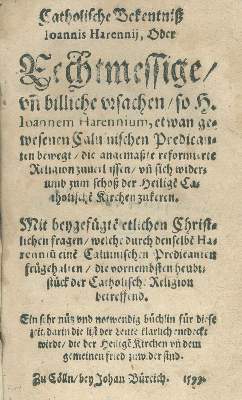 Catholische Bekentniß
Ioannis Harennij, Oder
Rechtmessige/
vñ billiche vrsachen/ so H.
Ioannem Harennium, etwan ge-
wesenen Caluinischen Predican-
ten bewegt/ die angemaßte reformierte
Religion zuuerlassen/ vñ sich wider-
umb zum schoß der Heiligē Ca-
tholischē Kirchen zukeren.
Mit beygefügtē etlichen Christ-
lichen fragen/ welche durch denselbē Ha-
renniū einē Caluinischen Predicanten
fürgehalten/ die vornembsten heubt-
stück der Catholisch. Religion
betreffend.
Ein sehr nütz vnd notwendig büchlin für diese
zeit/ darin die list der Leute klarlich entdeckt
wirdt/ die der Heiligē Kirchen vñ dem
gemeinen fried zuwider sind.
Zu Cölln/ bey Johan Bürcich. 1599.